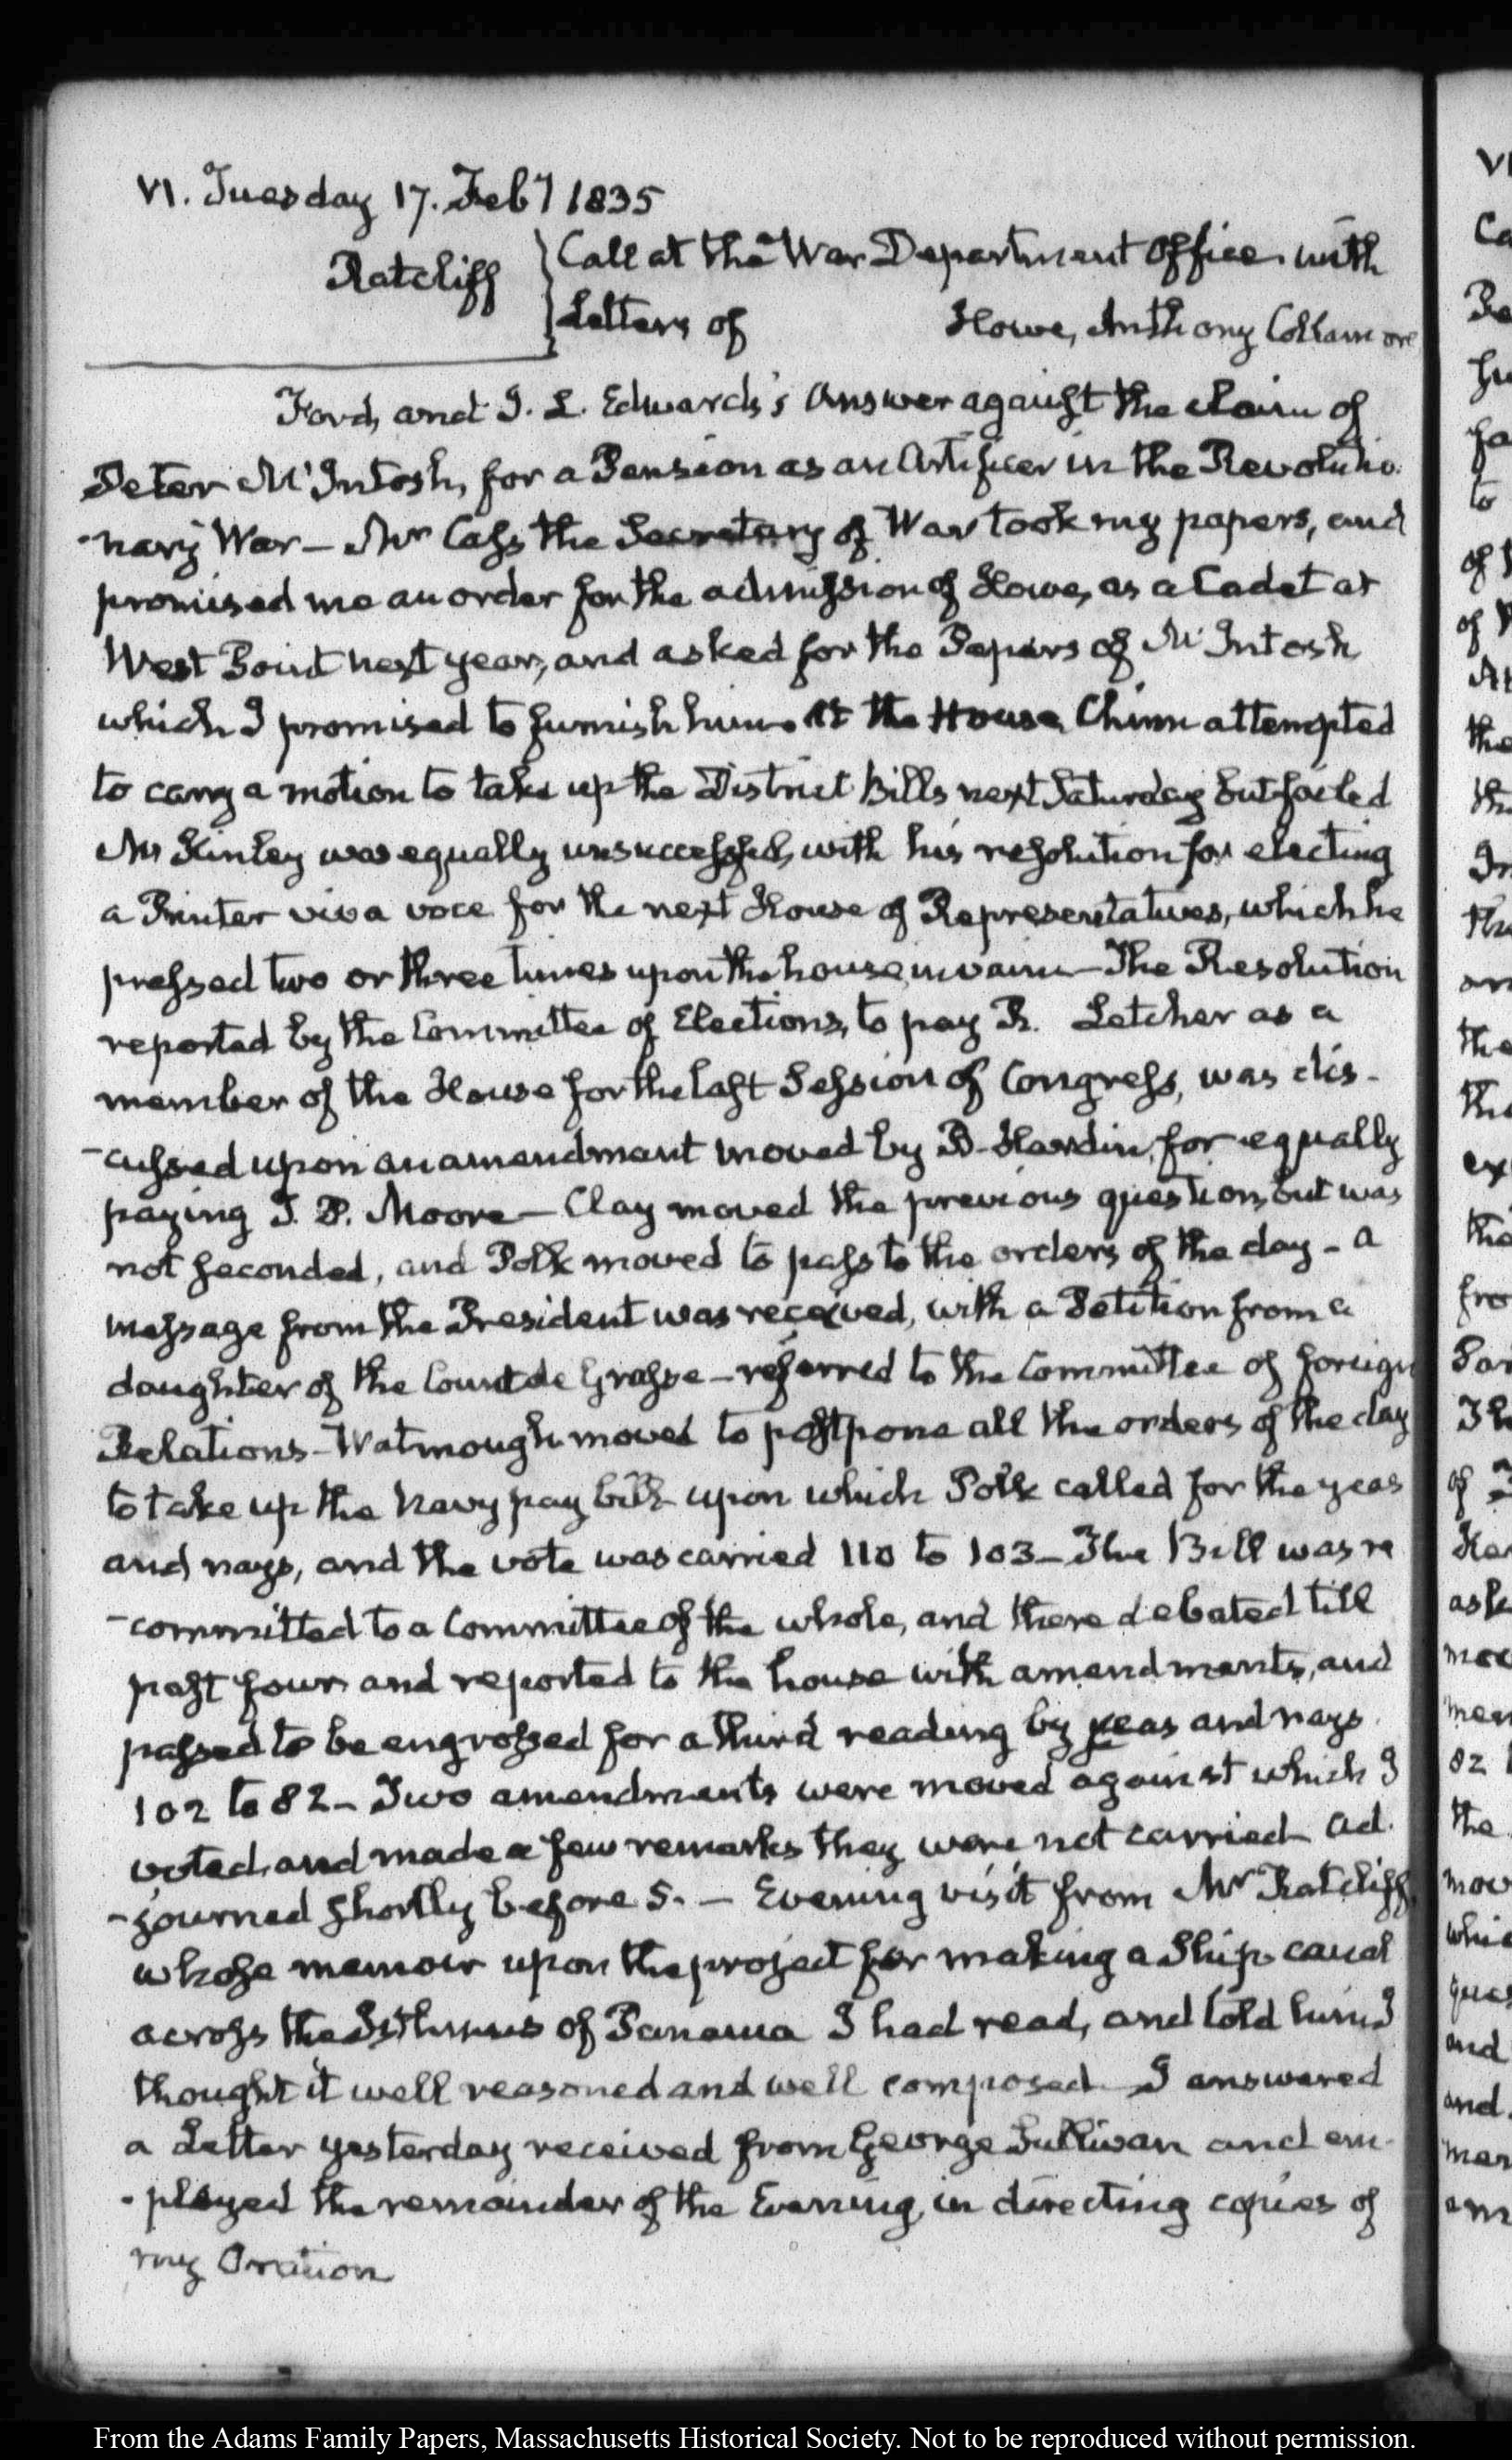 VI. Tuesday 17. Feby 1835
Ratcliff
Call at the War Department Office with
Letters of Howe, Anthony Collamore
Ford, and J. L. Edwards's Answer against the claim of
Peter McIntosh, for a Pension as an Artificer in the Revolutio
-nary War — Mr Cass the Secretary of War took my papers, and
promised me an order for the admission of Howe, as a Cadet at
West Point next year, and asked for the Papers of McIntosh
which I promised to furnish him. At the House Chinn attempted
to carry a motion to take up the District Bills next Saturday but failed
McKinley was equally unsuccessful, with his resolution for electing
a Printer viva voce for the next House of Representatives, which he
pressed two or three times upon the house, in vain — The Resolution
reported by the Committee of Elections, to pay R. Letcher as a
member of the House for the last Session of Congress, was dis-
-cussed upon an amendment moved by B. Hardin, for equally
paying T. P. Moore — Clay moved the previous question, but was
not seconded, and Polk moved to pass to the orders of the day - a
message from the President was received, with a Petition from a
daughter of the Count de Grasse — referred to the Committee of foreign
Relations - Watmough moved to postpone all the orders of the day
to take up the Navy pay bill upon which Polk called for the yeas
and nays, and the vote was carried 110 to 103 — The Bill was re
-committed to a Committee of the whole, and there debated till
past four and reported to the house with amendments, and
passed to be engrossed for a third reading by yeas and nays
102 to 82 — Two amendments were moved against which I
voted, and made a few remarks they were not carried Ad.
-journed shortly before 5. — Evening visit from Mr Ratcliff,
whose memoir upon the project for making a Ship canal
across the Isthmus of Panama I had read, and told him I
thought it well reasoned and well composed — I answered
a Letter yesterday received from George Sullivan and em-
-ployed the remainder of the Evening, in directing copies of
my Oration
From the Adams Family Papers, Massachusetts Historical Society. Not to be reproduced without permission.